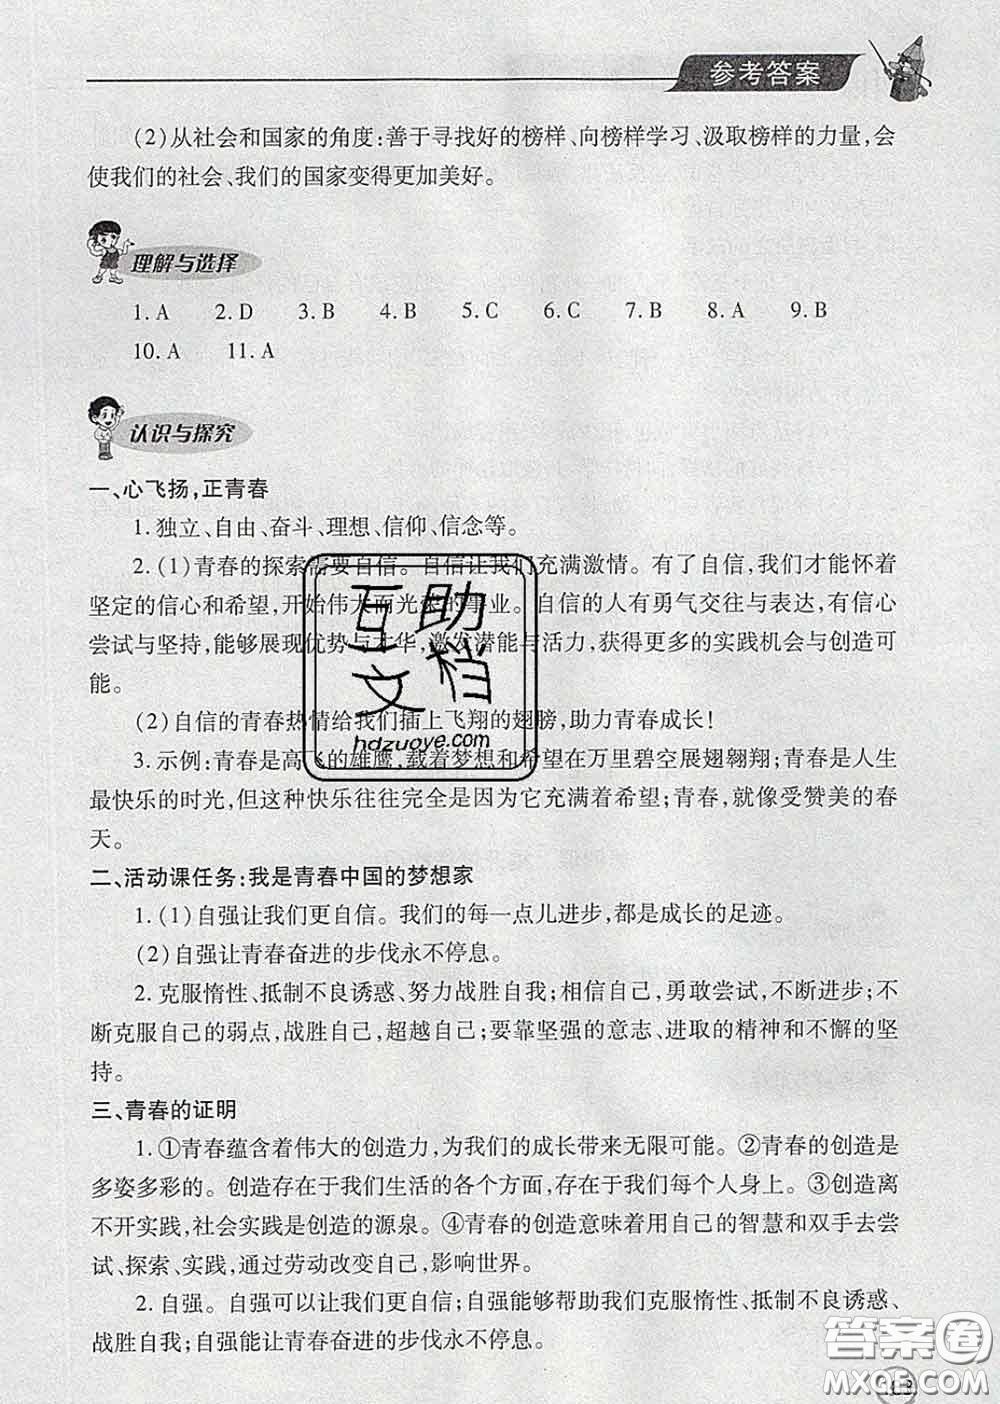 参考答案
(2)从社会和国家的角度:善于寻找好的榜样、向榜样学习、汲取榜样的力量,会
使我们的社会、我们的国家变得更加美好。
理解与选择
1. A 2. D 3. B 4. B 5. C 6. C 7. B 8. A 9. B
10. A 11. A
认识与探究
一、心飞扬,正青春
1. 独立、自由、奋斗、理想、信仰、信念等。
2. (1)青春的探索需要自信。自信让我们充满激情。有了自信,我们才能怀着
坚定的信心和希望,开始伟大而光荣的事业。自信的人有勇气交往与表达,有信心
尝试与坚持,能够展现优势与才华,激发潜能与活力,获得更多的实践机会与创造可
能。
(2)自信的青春热情给我们插上飞翔的翅膀,助力青春成长!
3. 示例:青春是高飞的雄鹰,载着梦想和希望在万里碧空展翅翱翔;青春是人生
最快乐的时光,但这种快乐往往完全是因为它充满着希望;青春,就像受赞美的春
天。
互助
文档
hdzuoye.com
二、活动课任务:我是青春中国的梦想家
1. (1)自强让我们更自信。我们的每一点儿进步,都是成长的足迹。
(2)自强让青春奋进的步伐永不停息。
2. 克服惰性、抵制不良诱惑、努力战胜自我;相信自己,勇敢尝试,不断进步;不
断克服自己的弱点,战胜自己,超越自己;要靠坚强的意志、进取的精神和不懈的坚
持。
三、青春的证明
1. ①青春蕴含着伟大的创造力,为我们的成长带来无限可能。②青春的创造是
多姿多彩的。创造存在于我们生活的各个方面,存在于我们每个人身上。③创造离
不开实践,社会实践是创造的源泉。④青春的创造意味着用自己的智慧和双手去尝
试、探索、实践,通过劳动改变自己,影响世界。
2. 自强。自强可以让我们更自信;自强能够帮助我们克服惰性、抵制不良诱惑、
战胜自我;自强能让青春奋进的步伐永不停息。
答案卷
MXQE.COM